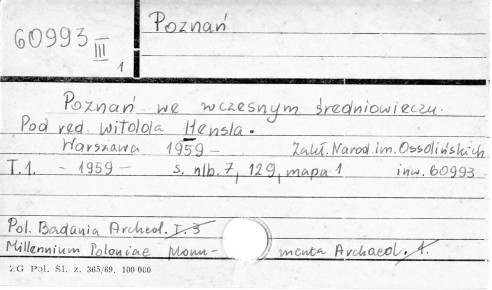 60993 III 1
Poznań
Poznań we wczesnym średniowieczu.
Pod red. Witolda Hensla.
Warszawa 1959 - Zakł. Narod. im. Ossolińskich
T.1. - 1959 - s. nlb. 7, 129, mapa 1 inw. 60993
Pol. Badania Archeol. T. 3
Millennium Poloniae Monu- menta Archaeol. 1.
ZG Pol. Śl. z. 365/69. 100 000